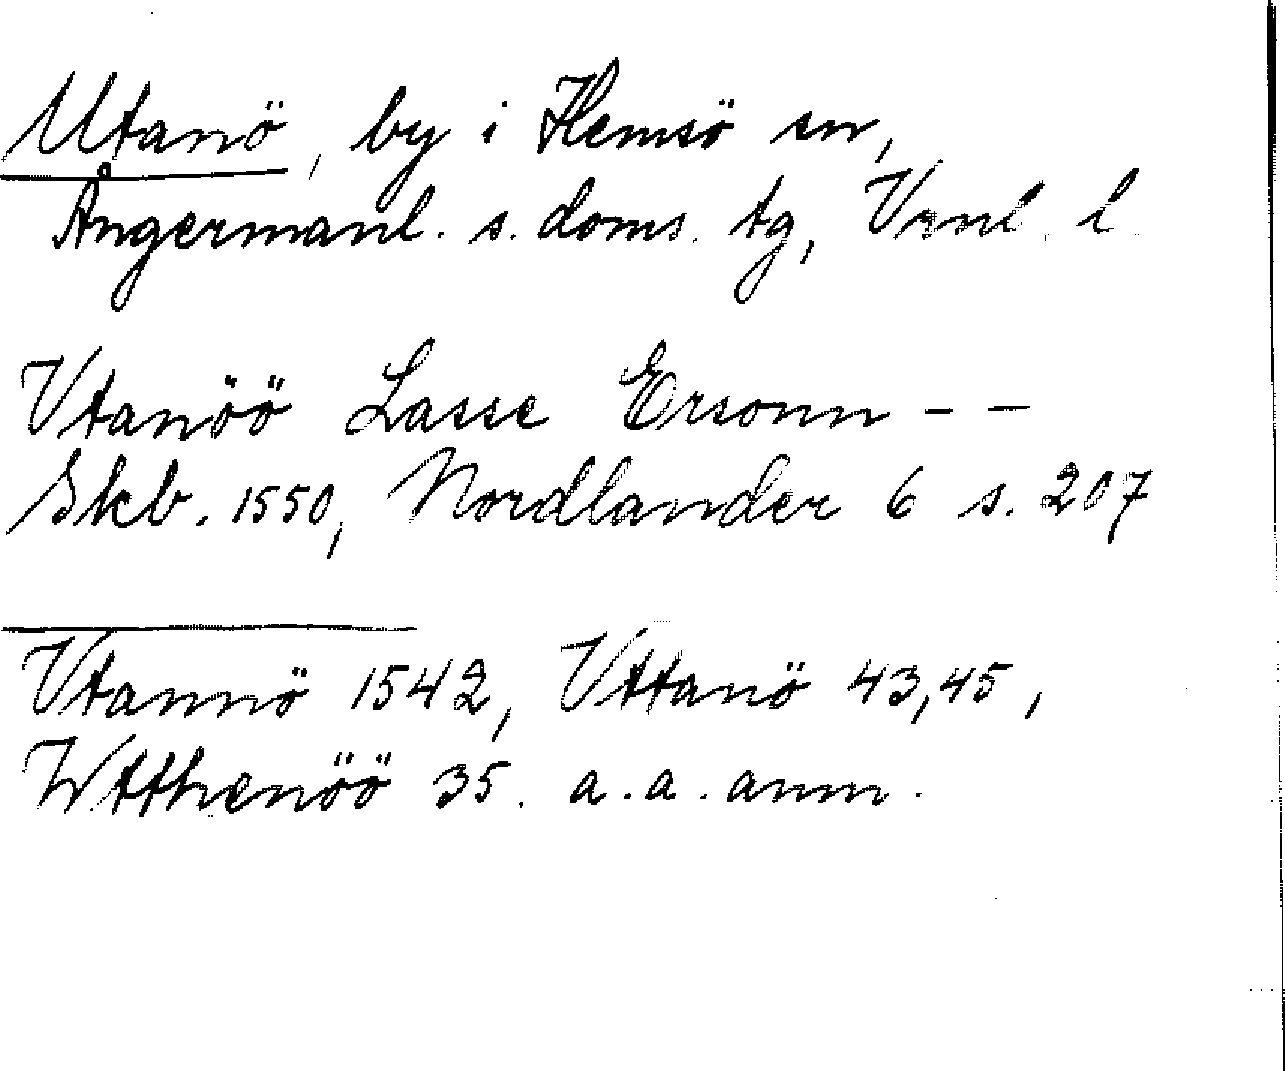 Utanö, by i Hemsö sn,
Ångermanl. s. doms. tg, Vrnl. l
Vtanöö Lasse Ersonn - -
Skb. 1550, Nordlander 6 s. 207
Vtannö 1542, Vttanö 43,45,
Wtthenöö 35. a.a. anm.